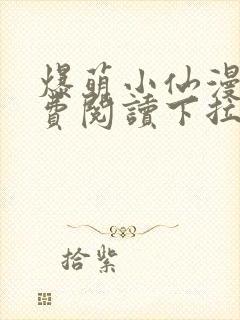 爆萌小仙漫
費閱讀下拉
拾紫